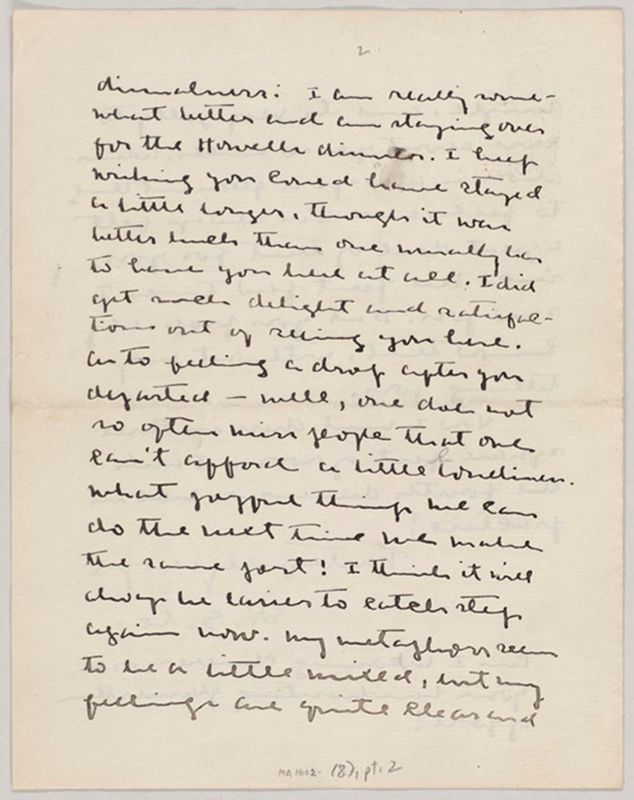 2
dismalness: I am really some-
what better and am staying over
for the Howells dinner. I keep
wishing you could have stayed
a little longer, though it was
better luck than one usually has
to have you here at all. I did
get much delight and satisfac-
tion out of seeing you here.
As to feeling a drop after you
departed — well, one does not
so often miss people that one
can't afford a little loneliness.
What joyful things we can
do the next time we make
the same port! I think it will
always be easier to catch step
again now. My metaphors seem
to be a little mixed, but my
feelings are quite clear and
MA 1602- (87), pt. 2